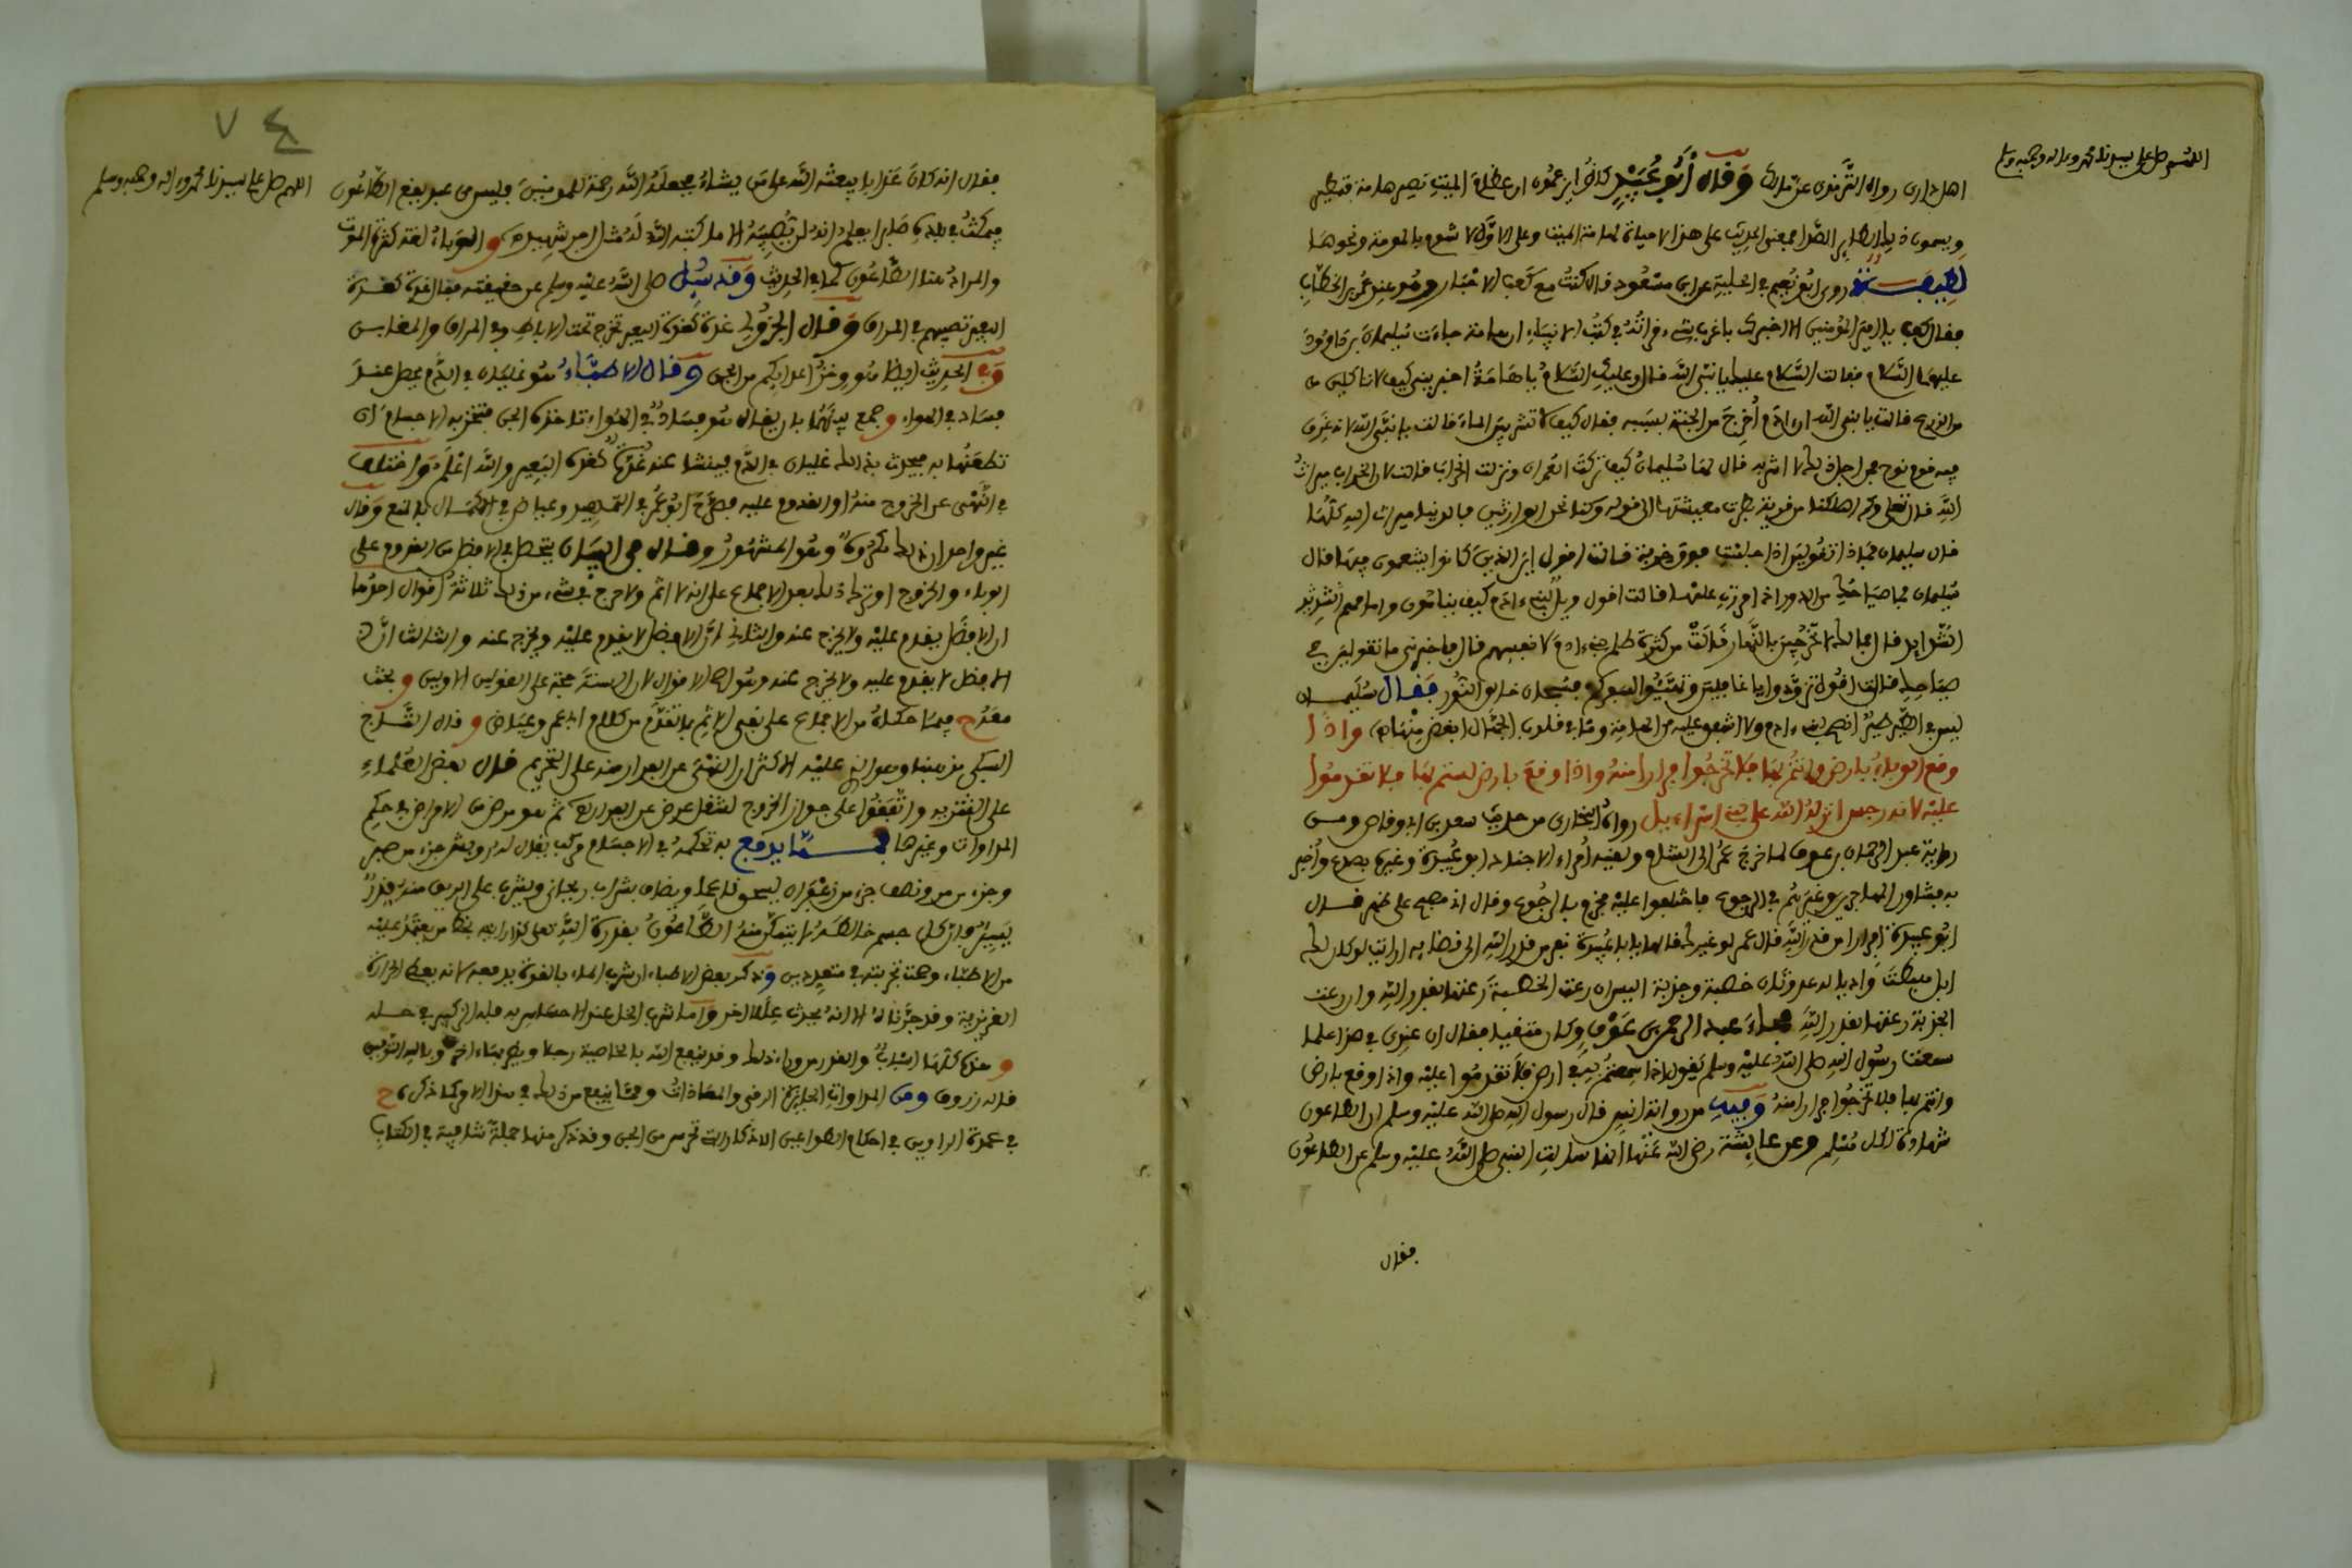 اللهم صل على سيدنا محمد وءاله وصحبه وسلم
اهل داري رواه الترمذي عن مالك وقال أبو عبيد كانوا يزعمون ان عظام الميت تصير هامة فتطير
ويسمون ذلك الطاير الصدا فمعنى الحديث على هذا لا حياة لهامة الميت وعلى الاول لا شوم بالبومة ونحوها
لطيفة روى ابو نعيم في الحلية عن ابن مسعود قال كنت مع كعب الاحبار وهو عند عمر بن الخطاب
فقال كعب يا امير المؤمنين الا اخبرك باغرب شيء قراته في كتب الانبياء ان هامة جاءت سليمان بن داوود
عليهما السلام فقالت السلام عليك يا نبي الله قال وعليك السلام يا هامة اخبريني كيف لا تاكلين
من الزرع قالت يا نبي الله ان ءادم أخرج من الجنة بسببه فقال كيف لا تشربين الماء قالت يا نبي الله لانه غرق
فيه قوم نوح فمن اجل ذلك لا اشربه قال لها سليمان كيف تركت العمران ونزلت الخراب قالت لان الخراب ميراث
الله قال تعلى وكم اهلكنا من قرية بطرت معيشتها الى قوله وكنا نحن الوارثين فالدنيا ميراث الله كلها
قال سليمان فماذا تقولين اذا جلست فوق خربة قالت اقول اين الذين كانوا يتنعمون فيها قال
سليمان فما صياحك في الدور اذا مررت عليها قالت اقول ويل لبني ءادم كيف ينامون وامامهم الشدايد
قال فما لك لا تخرجين بالنهار قالت من كثرة ظلم بني ءادم لانفسهم قال فاخبريني ما تقولين في
صياحك قالت اقول تزودوا يا غافلين وتهيئوا لسفركم سبحان خالق النور فقال سليمان
ليس في الطير طير انصح لبني ءادم ولا اشفق عليهم من الهامة وما في قلوب الجهال ابغض منها واذا
وقع الوباء بارض وانتم بها فلا تخرجوا فرارا منه واذا وقع بارض لستم بها فلا تقدموا
عليه لانه رجس انزله الله على بني اسراءيل رواه البخاري من حديث سعد بن ابي وقاص ومن
رواية عبد الرحمان بن عوف لما خرج عمر الى الشام ولقيه أمراء الاجناد ابو عبيدة وغيره بصرغ وأخبر
به فشاور المهاجرين وغيرهم في الرجوع فاختلفوا عليه فجزم بالرجوع وقال اني مصبح على ظهر قال
ابو عبيدة افرارا من قدر الله قال عمر لو غيرك قالها يا با عبيدة نعم نفر من قدر الله الى قضايه ارايت لو كان لك
ابل هبطت واديا له عدوتان خصبة وجدبة اليس ان رعت الخصبة رعتها بقدر الله وان رعت
الجدبة رعتها بقدر الله فجاء عبد الرحمن بن عوف وكان متغيبا فقال ان عندي في هذا علما
سمعت رسول الله صلى الله عليه وسلم يقول اذا سمعتم به في ارض فلا تقدموا عليه واذا وقع بارض
وانتم بها فلا تخرجوا فرارا منه وفيه من رواية انس قال رسول الله صلى الله عليه وسلم ان الطاعون
شهادة لكل مسلم وعن عايشة رضي الله عنها انها سالت النبي صلى الله عليه وسلم عن الطاعون
فقال
٧٤
اللهم صل على سيدنا محمد وءاله وصحبه وسلم
فقال انه كان عذابا يبعثه الله على من يشاء فجعله الله رحمة للمومنين فليس من عبد يقع الطاعون
فيمكث في بلده صابرا يعلم انه لن يصيبه الا ما كتبه الله له مثل اجر شهيد و الوباء لغة كثرة الموت
والمراد هنا الطاعون كما في الحديث وقد سيل صلى الله عليه وسلم عن حقيقته فقال غدة كغدة
البعير تصيبهم في المراق وقال الجزولي غدة كغدة البعير تخرج تحت الاباط وفي المراق والمغابن
وفي الحديث ايضا هو وخز أعدايكم من الجن وقال الاطباء هو غليان في الدم يحصل عند
فساد في الهواء وجمع بينهما بان يقال هو فساد في الهواء تدخله الجن فتخز به الاجسام اي
تطعنها به فيحدث بذلك غليان في الدم فينشا عنه غدة كغدة البعير والله اعلم واختلف
في النهي عن الخروج منه او القدوم عليه فصرح ابو عمر في التمهيد وعياض في الاكمال بالمنع وقال
غير واحد ان ذلك مكروه وهو المشهور وقال في البيان يتحصل في الافضل من القدوم على
الوباء والخروج او ترك ذلك بعد الاجماع على انه لا اثم ولا حرج في شيء من ذلك ثلاثة أقوال احدها
ان الافضل يقدم عليه ولا يخرج عنه والثاني ان الافضل لا يقدم عليه ويخرج عنه والثالث ان
الافضل لا يقدم عليه ولا يخرج عنه وهو اصح الاقوال لان السنة حجة على القولين الاولين و بحث
فيما حكاه من الاجماع على نفي الاثم بما تقدم من كلام ابي عمر وعياض و قال التاج
السبكي مذهبنا وهو الذي عليه الاكثر ان النهي عن الفرار منه على التحريم قال بعض العلماء
على التنزيه واتفقوا على جواز الخروج لشغل عرض غير الفرار ثم هو مرض من الامراض في حكم
المداوات وغيرها مما يدفع به تحكمه في الاجسام مركب يقال له وهو جزء من صبر
وجزء من مر ونصف جزء من زعفران يسحق ناعما ويضاف بشراب ريحاني ويشرب على الريق منه قدر
يسير فان كل جسم خالطه لا يتمكن منه الطاعون بقدرة الله تعلى كذا رايته بخط من يعتمد عليه
من الاطباء وصحت تجربته في متعددين وذكر بعض الاطباء ان شرب الماء بالقوة يدفعه لانه يطفي الحرارة
الغريزية وقد جربناه الا انه يحدث عللا اخر واما شرب الخل عند الاحساس به فله اثر كبير في حسمه
و هذه كلها اسباب والقدر من وراء ذلك وقد ينفع الله بالخاصية رجلا ويضر بها ءاخر وبالله التوفيق
قاله زروق ومن المداوات الجليلة الرقى والمعاذات ومما ينفع من ذلك في هذا الامر كما ذكره ح
في عمدة الراوين في احكام الطواعين الاذكار التي تحرس من الجن وقد ذكر منها جملة شافية في الكتاب